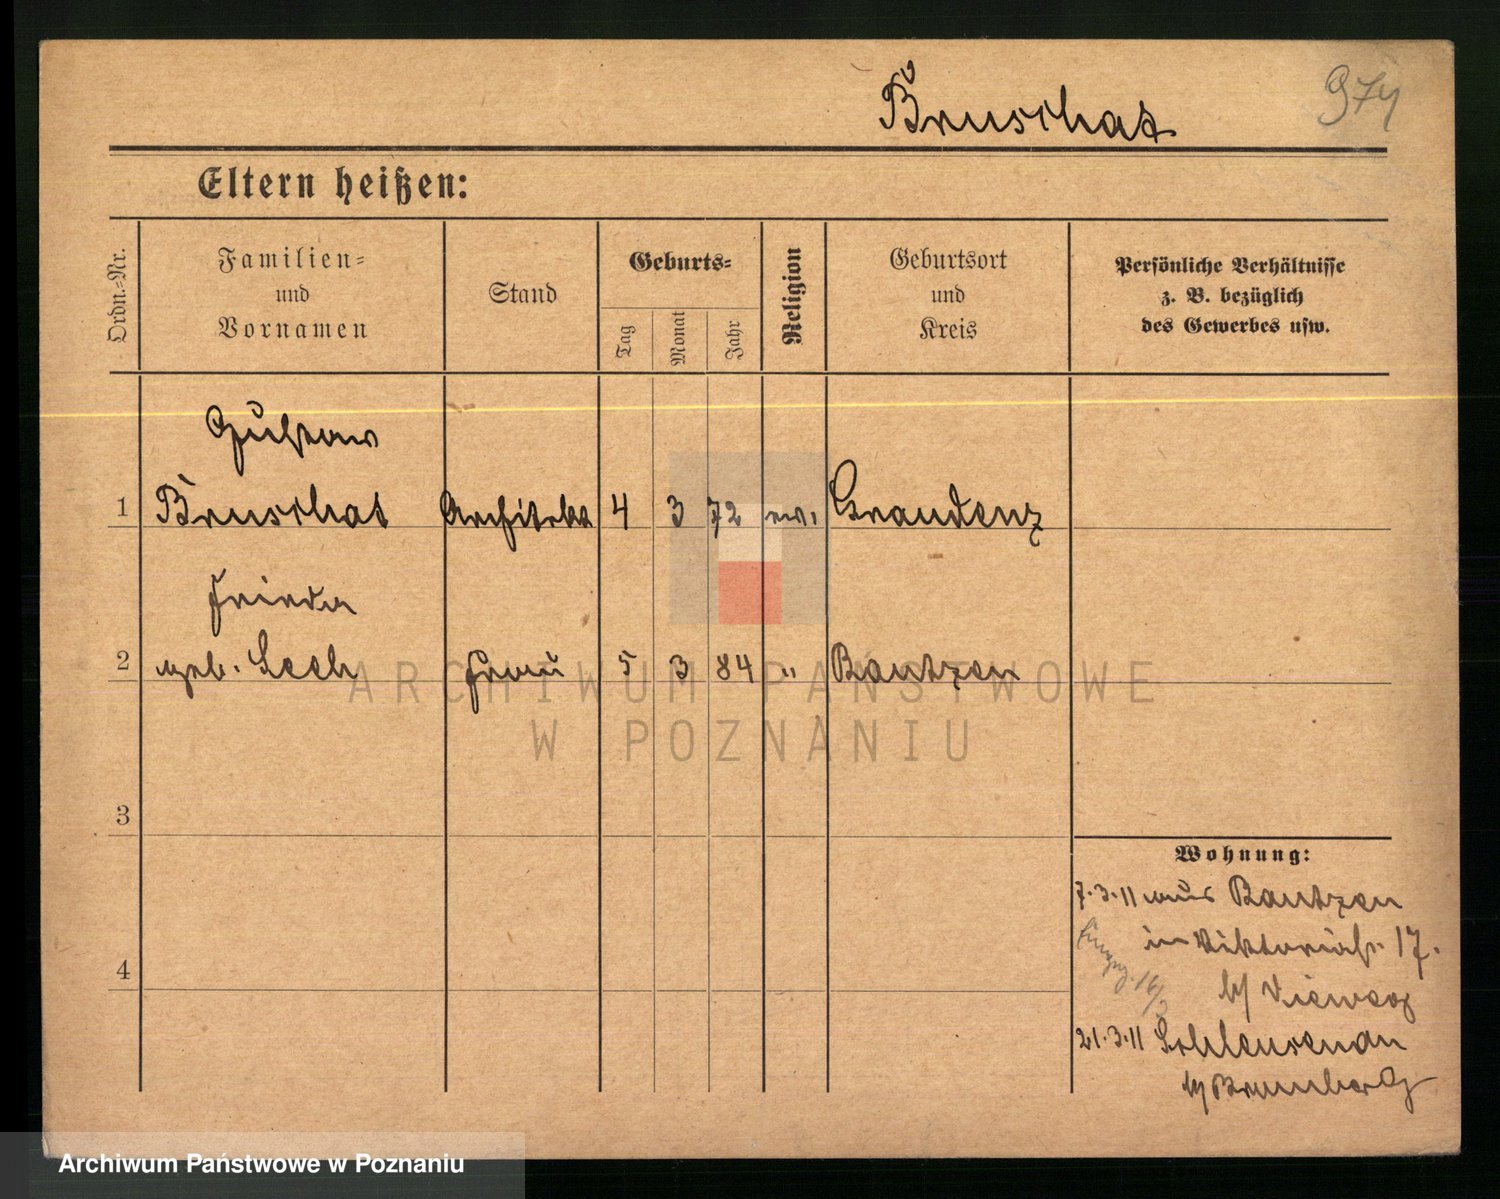 Bruschat
974
Eltern heißen:
Ordn.-Nr.
Familien-
und
Vornamen
Stand
Geburts-
Tag
Monat
Jahr
Religion
Geburtsort
und
Kreis
Persönliche Verhältnisse
z. B. bezüglich
des Gewerbes usw.
Gustav
1 Bruschat Architekt 4 3 72 ev. Graudenz
Frieda
2 geb. Frau 5 3 84 " Bautzen
3
4
Wohnung:
7.3.11 aus Bautzen
in Viktoriastr. 17.
b/ Vieweg
16/3
21.3.11 Schleusenau
b/ Bromberg
ARCHIWUM PAŃSTWOWE
W POZNANIU
Archiwum Państwowe w Poznaniu